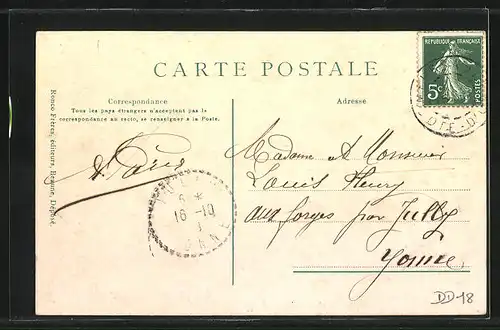 RÉPUBLIQUE FRANÇAISE
5c
POSTES
CARTE POSTALE
Correspondance
Tous les pays étrangers n'acceptent pas la
correspondance au recto, se renseigner à la Poste.
Adresse
Ronco Frères, éditeurs, Beaune, Déposé.
Madame et Monsieur
Louis Fleury
aux forges par Jully
Yonne
6 *
16 -10
DD-18